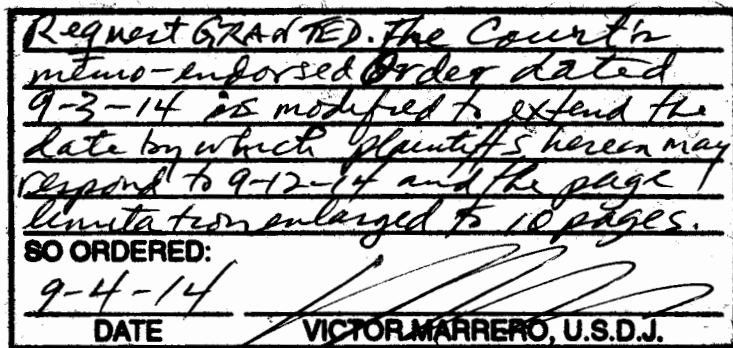 Request GRANTED. The Court's
memo-endorsed Order dated
9-3-14 is modified to extend the
date by which plaintiffs herein may
respond to 9-12-14 and the page
limitation enlarged to 10 pages.
SO ORDERED:
9-4-14
DATE VICTOR MARRERO, U.S.D.J.